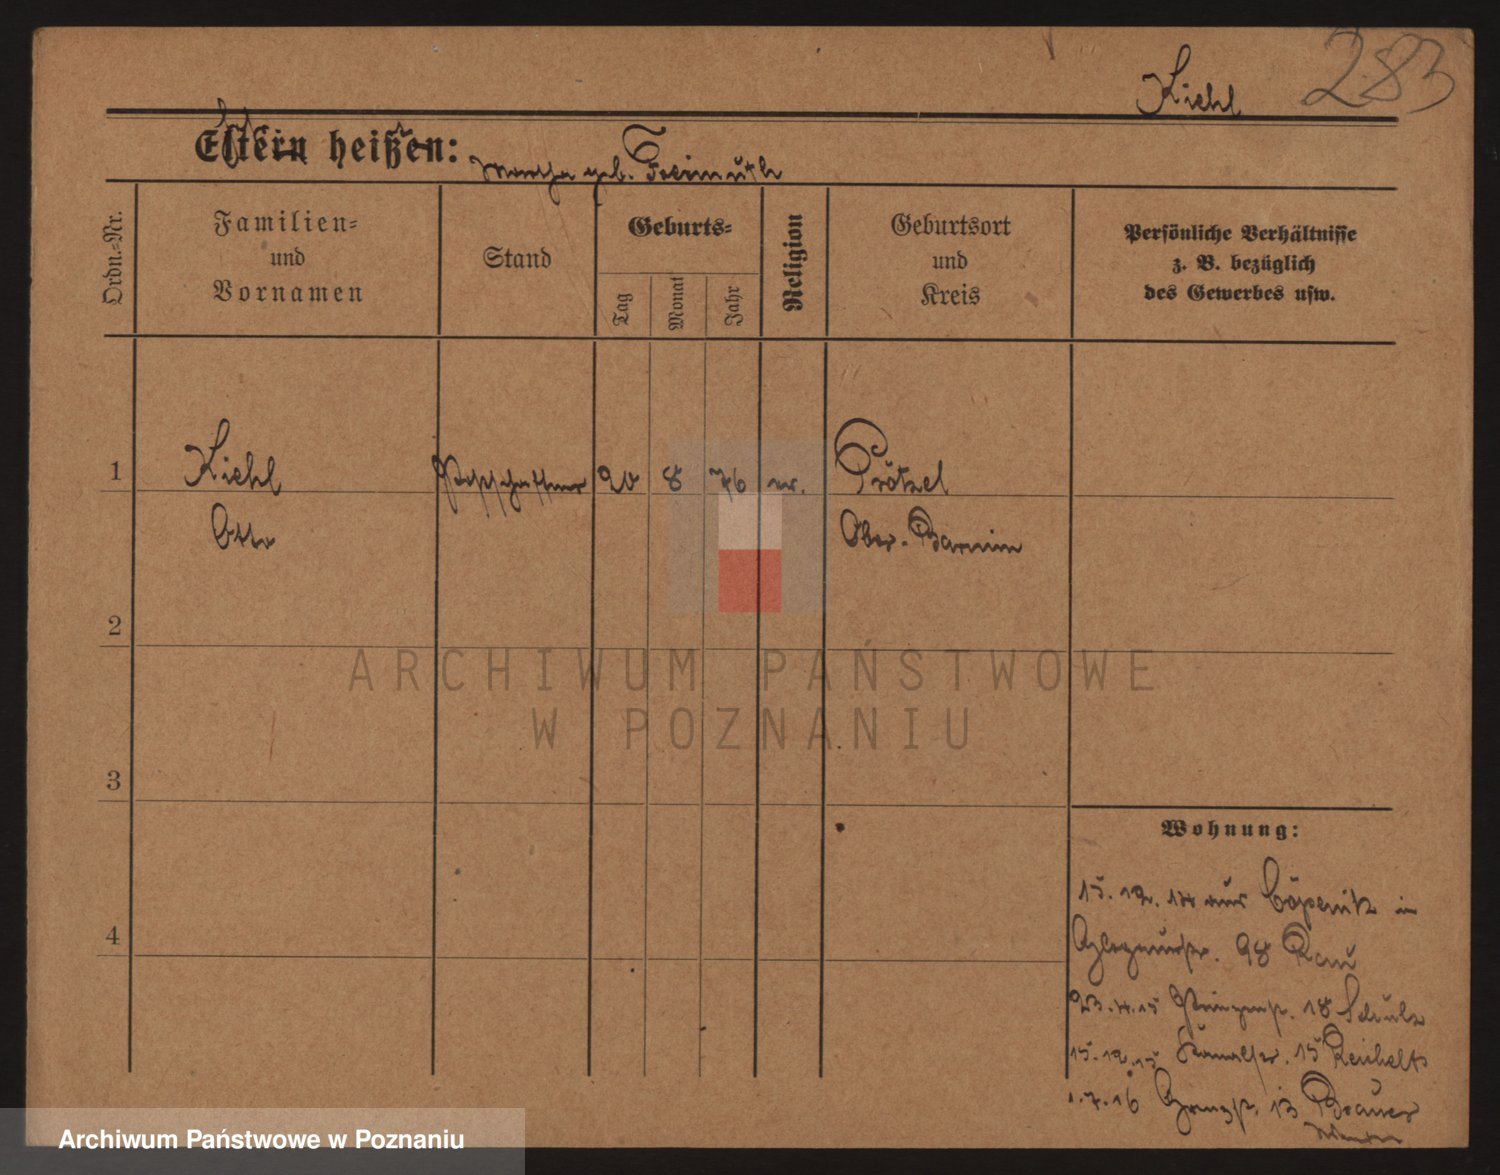 283
Kiehl
Eltern heißen:
Martha geb. Freimuth
Ordn.-Nr.
Familien-
und
Vornamen
Stand
Geburts-
Tag
Monat
Jahr
Religion
Geburtsort
und
Kreis
Persönliche Verhältnisse
z. B. bezüglich
des Gewerbes usw.
1
Kiehl
Postschaffner
20
8
76
ev.
Prötzel
Otto
Ober-Barnim
2
3
4
Wohnung:
15.12.14 aus Cöpenik in
Glogauerstr. 98 Rau
23.4.15 Prinzenstr. 18 Schulz
15.12.15 Kanalstr. 15 Reichelt
1.7.16 13 Brauer
ARCHIWUM PAŃSTWOWE
W POZNANIU
Archiwum Państwowe w Poznaniu